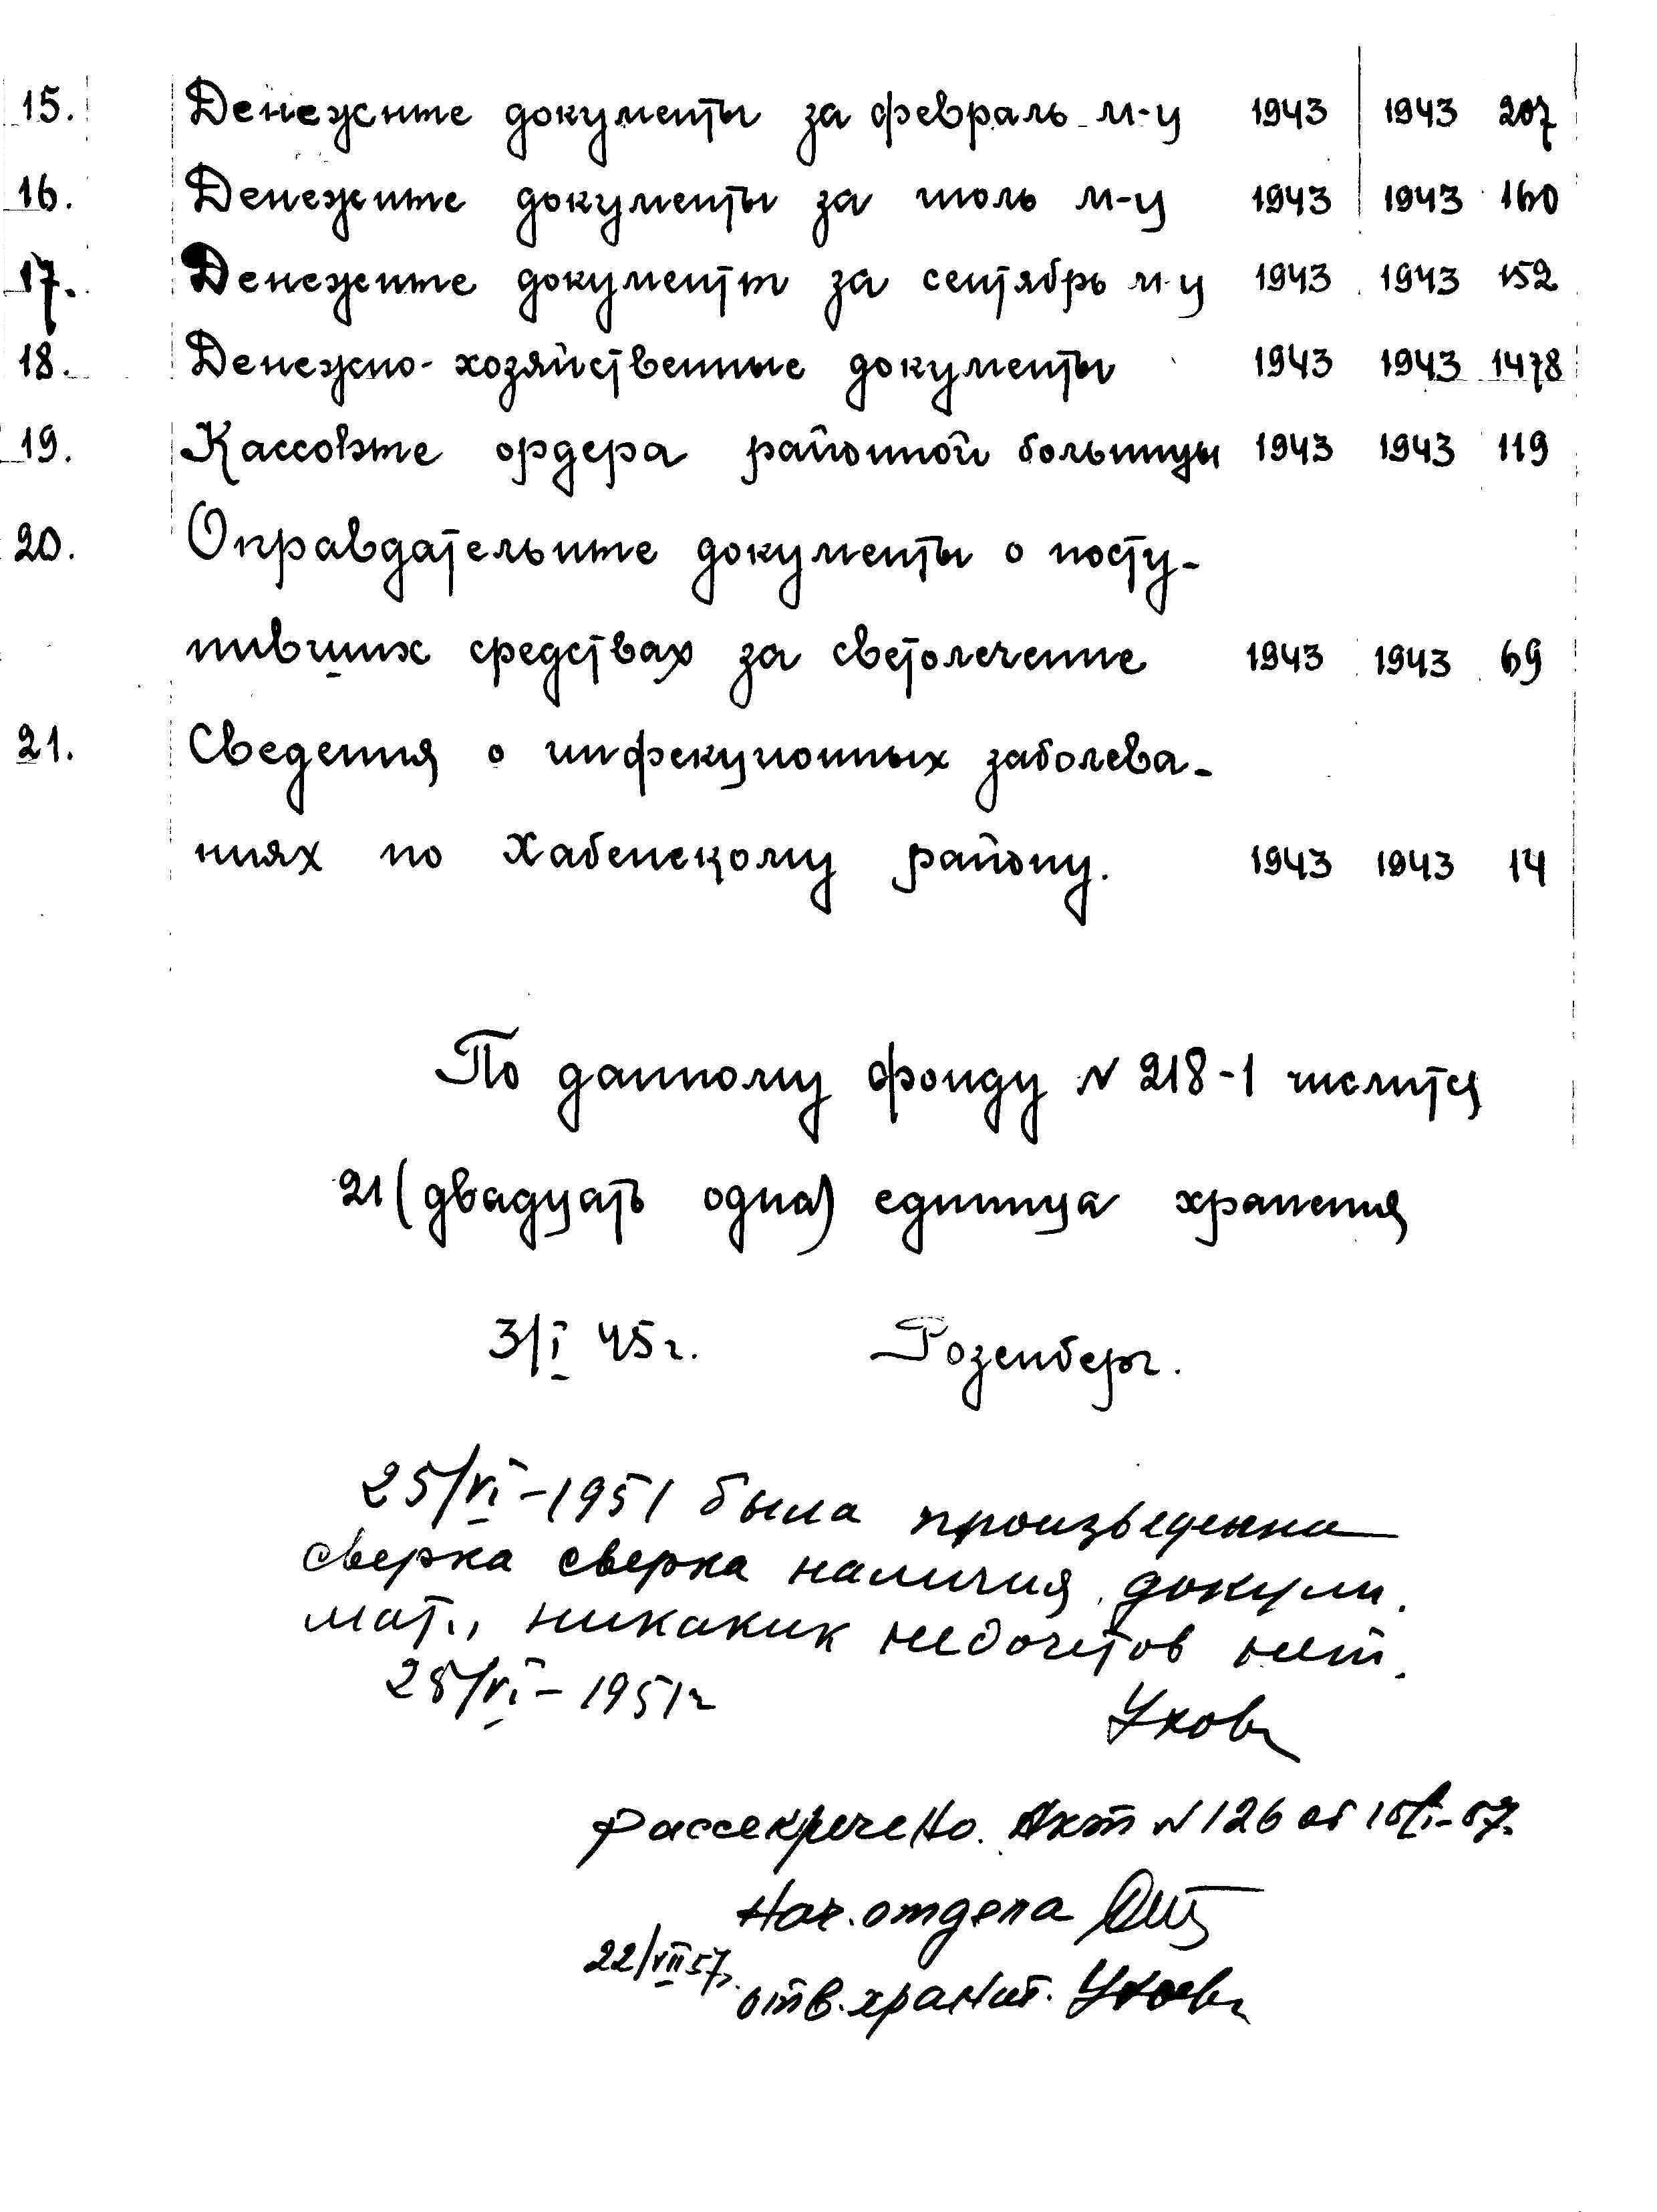 15. Денежные документы за февраль м-ц 1943 1943 207
16. Денежные документы за июль м-ц 1943 1943 160
17. Денежные документы за сентябрь м-ц 1943 1943 152
18. Денежно-хозяйственные документы 1943 1943 1478
19. Кассовые ордера районной больницы 1943 1943 119
20. Оправдательные документы о посту-
пивших средствах за светолечение 1943 1943 69
21. Сведения о инфекционных заболева-
ниях по Хабенскому району. 1943 1943 14
По данному фонду № 218-1 числится
21 (двадцать одна) единица хранения
3/I 45 г. Розенберг.
25/VI-1951 была произведенна
сверка сверка наличия докум.
мат., никаких недочетов нет.
28/VI-1951г
Ухов
Рассекречено. Акт № 126 от
Нач. отдела
22/VII 57г.
отв. хранит. Ухов